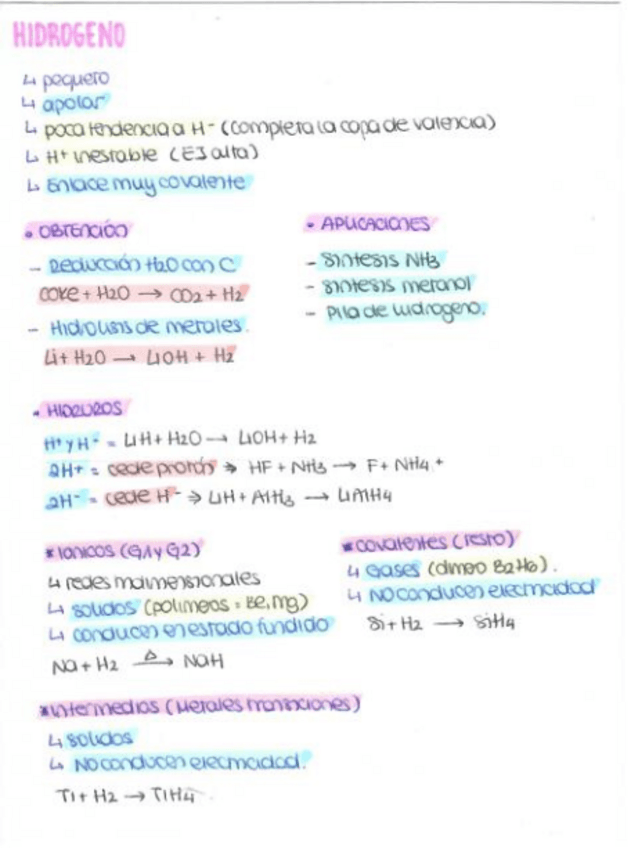 HIDROGENO
↳ pequeño
↳ apolar
↳ poca tendencia a H- (completa la capa de valencia)
↳ H+ inestable (EI alta)
↳ Enlace muy covalente
• OBTENCIÓN
- Reducción H2O con C
coke + H2O → CO2 + H2
- Hidrolisis de metales.
Li + H2O → LiOH + H2
• APLICACIONES
- Sintesis NH3
- sintesis metanol
- Pila de hidrogeno.
• HIDRUROS
H+ y H- = LiH + H2O → LiOH + H2
2H+ = cede protón → HF + NH3 → F + NH4+
2H- = cede H- → LiH + AlH3 → LiAlH4
* Ionicos (G1 y G2)
↳ redes mdimensionales
↳ solidos (polimeos = Be, Mg)
↳ conducen en estado fundido
Na + H2 →Δ NaH
* covalentes (resto)
↳ Gases (dimeo B2H6).
↳ NO conducen electricidad
Si + H2 → SiH4
* Intermedios (Metales transiciones)
↳ solidos
↳ NO conducen electricidad.
Ti + H2 → TiH4.